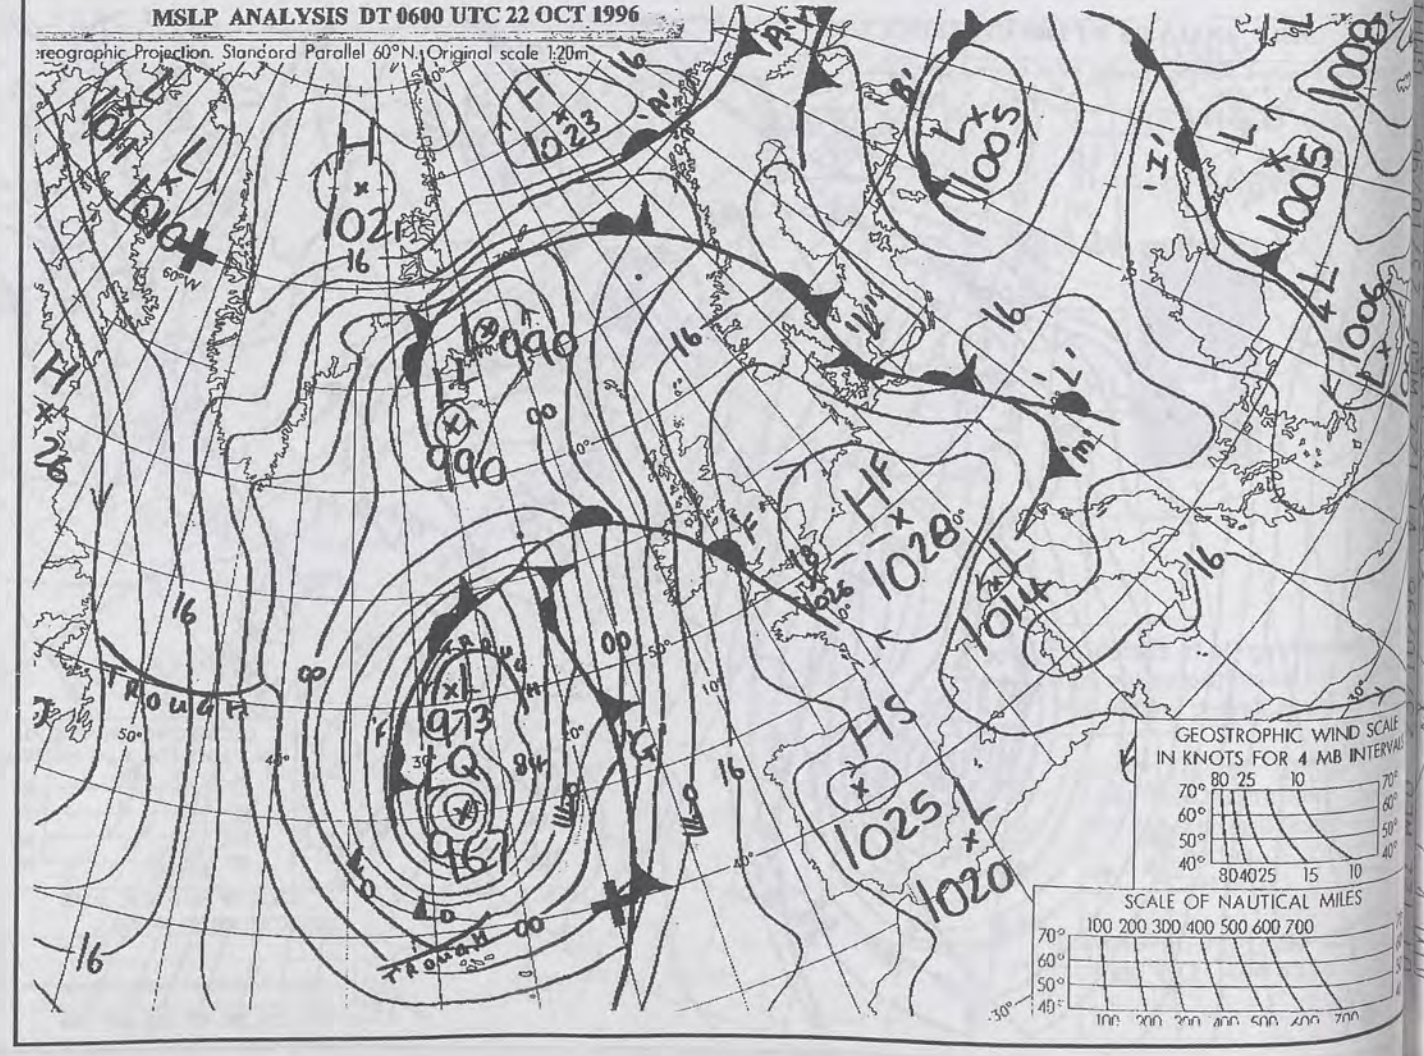 MSLP ANALYSIS DT 0600 UTC 22 OCT 1996
reographic Projection. Standard Parallel 60°N. Original scale 1:20m
L
1011
L
1010
60°W
H
1021
16
H
1023
16
'A'
'A'
'B'
L
1005
'I'
L
1005
L
1008
L
1006
H
26
L
990
L
990
00
0°
16
'L'
16
'L'
'm'
HF
1028
0°
1026
L
1014
16
'F'
16
00
TROUGH
50°
40°
TROUGH
L
973
'F'
30°
LQ
967
84
20°
00
50°
10°
'G'
16
40°
HS
1025
L
1020
L
D
L
D
TROUGH
00
16
30°
30°
GEOSTROPHIC WIND SCALE
IN KNOTS FOR 4 MB INTERVALS
80 25 10
70° 70°
60° 60°
50° 50°
40° 40°
80 40 25 15 10
SCALE OF NAUTICAL MILES
100 200 300 400 500 600 700
70°
60°
50°
40°
100 200 300 400 500 600 700